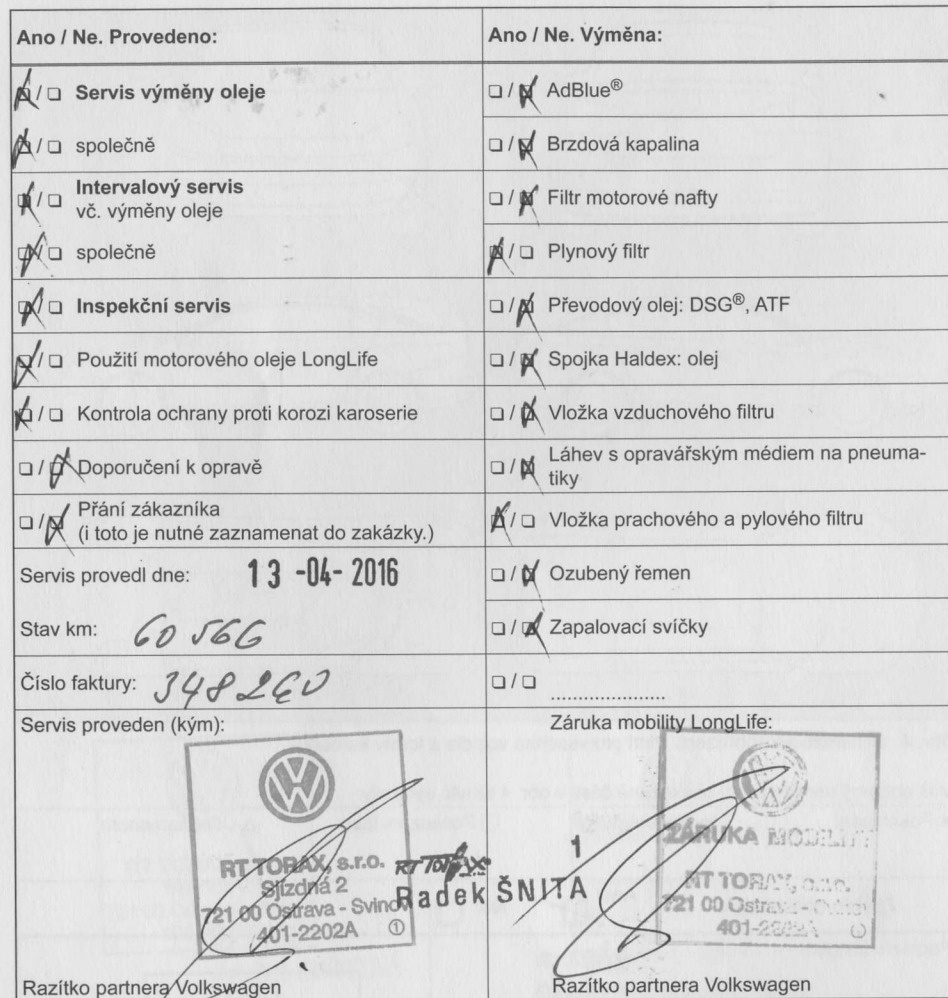 Ano / Ne. Provedeno:
□ / □ Servis výměny oleje
□ / □ společně
□ / □ Intervalový servis
vč. výměny oleje
□ / □ společně
□ / □ Inspekční servis
□ / □ Použití motorového oleje LongLife
□ / □ Kontrola ochrany proti korozi karoserie
□ / □ Doporučení k opravě
□ / □ Přání zákazníka
(i toto je nutné zaznamenat do zakázky.)
Servis provedl dne: 13 -04- 2016
Stav km: 60 566
Číslo faktury:
Servis proveden (kým):
RT TORAX, s.r.o.
Sjízdná 2
721 00 Ostrava - Svinov
401-2202A 1
Razítko partnera Volkswagen
RT TORAX
1
Radek ŠNITA
Ano / Ne. Výměna:
□ / □ AdBlue®
□ / □ Brzdová kapalina
□ / □ Filtr motorové nafty
□ / □ Plynový filtr
□ / □ Převodový olej: DSG®, ATF
□ / □ Spojka Haldex: olej
□ / □ Vložka vzduchového filtru
□ / □ Láhev s opravářským médiem na pneuma-
tiky
□ / □ Vložka prachového a pylového filtru
□ / □ Ozubený řemen
□ / □ Zapalovací svíčky
□ / □ ....................
Záruka mobility LongLife:
ZÁRUKA MOBILITY
RT TORAX, s.r.o.
721 00 Ostrava
401-2202A
Razítko partnera Volkswagen